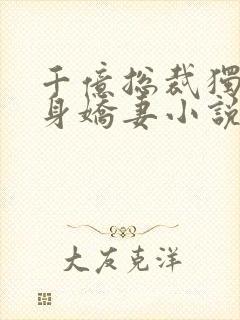 千億总裁獨
身嬌妻小說
大友克洋